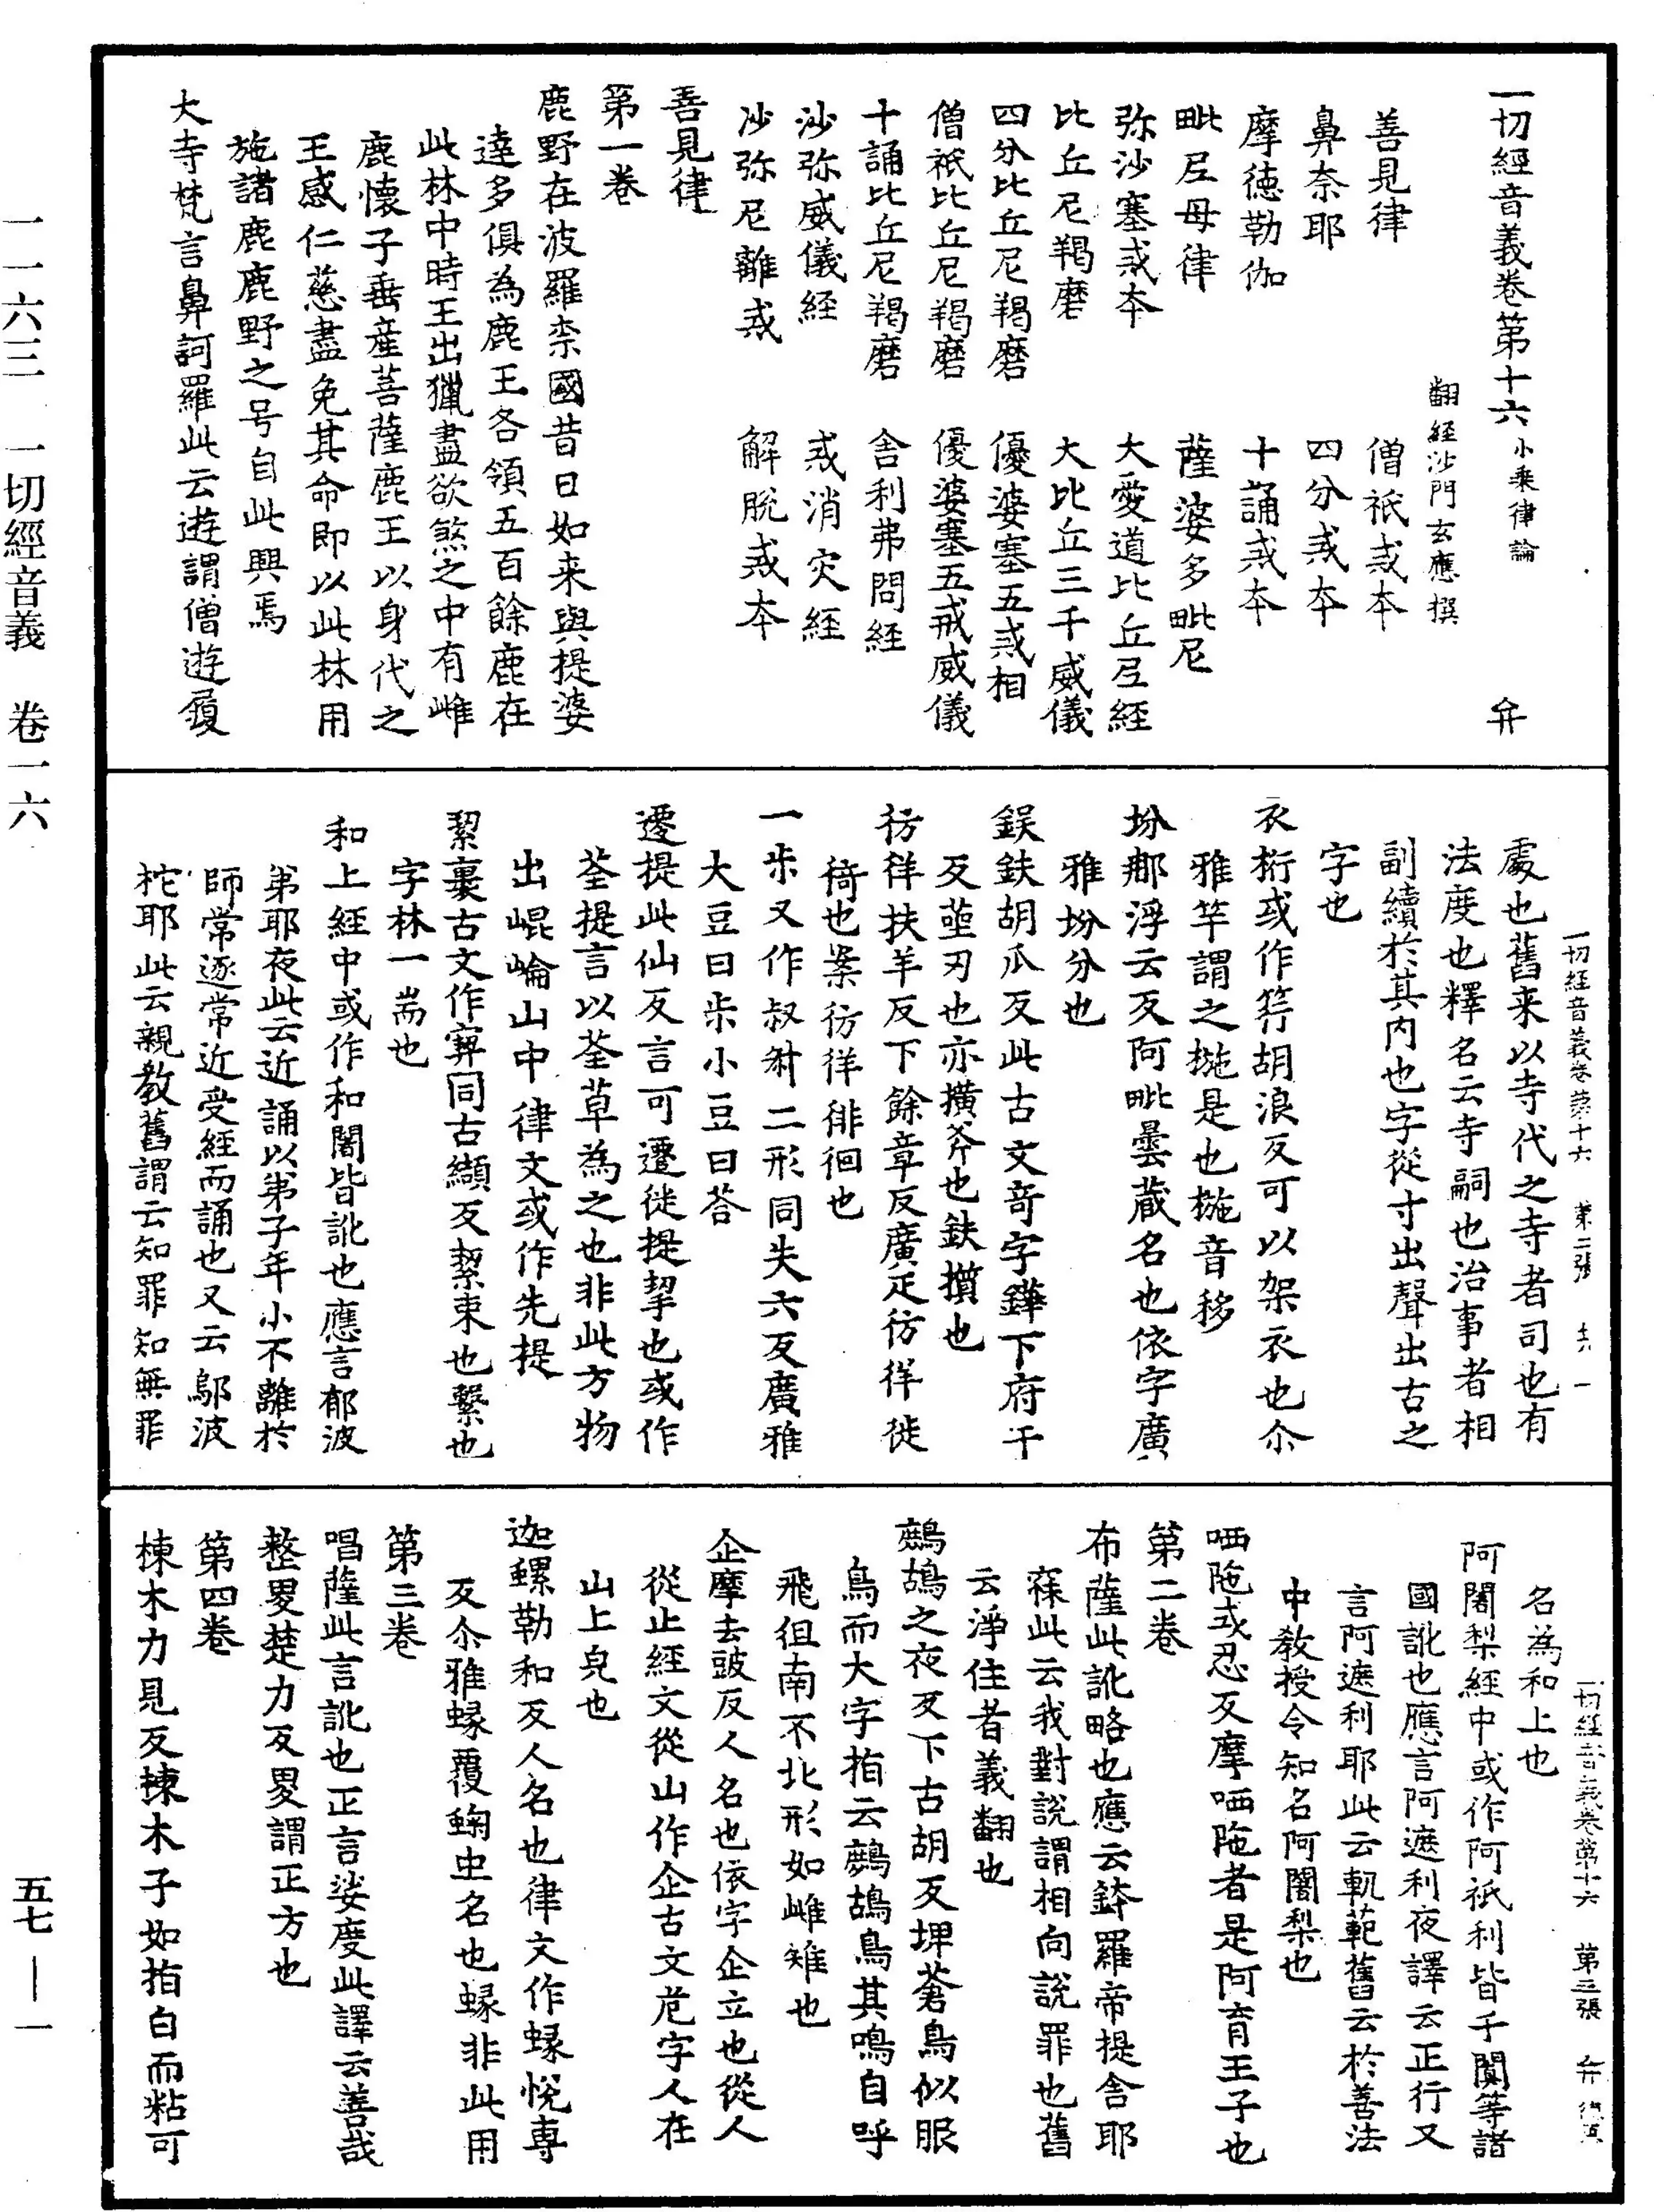 一切經音義卷第十六 小乘律論 弁
翻經沙門玄應撰
善見律 僧祇戒本
鼻奈耶 四分戒本
摩德勒伽 十誦戒本
毗尼母律 薩婆多毗尼
弥沙塞戒本 大愛道比丘尼經
比丘尼羯磨 大比丘三千威儀
四分比丘尼羯磨 優婆塞五戒相
僧祇比丘尼羯磨 優婆塞五戒威儀
十誦比丘尼羯磨 舎利弗問經
沙弥威儀經 戒消灾經
沙弥尼離戒 解脫戒本
善見律
第一卷
鹿野在波羅柰國昔日如来與提婆
達多俱為鹿王各領五百餘鹿在
此林中時王出獵盡欲煞之中有雌
鹿懷子垂産菩薩鹿王以身代之
王感仁慈盡免其命即以此林用
施諸鹿鹿野之号自此興焉
大寺梵言鼻訶羅此云遊謂僧遊履
一切經音義卷第十六 第二張 弁一
處也舊来以寺代之寺者司也有
法度也釋名云寺嗣也治事者相
副續於其内也字從寸出聲出古之
字也
衣桁或作笐胡浪反可以架衣也尒
雅竿謂之椸是也椸音移
坋那浮云反阿毗曇蔵名也依字廣
雅坋分也
鋘鈇胡瓜反此古文竒字鏵下府于
反莝刃也亦擴斧也鈇攢也
彷徉扶羊反下餘章反廣疋彷徉徙
倚也案彷徉徘徊也
一尗又作叔𣏟二形同失六反廣雅
大豆曰尗小豆曰荅
遷提此仙反言可遷徙提挈也或作
荃提言以荃草為之也非此方物
出崐崘山中律文或作先提
絜裹古文作㝣同古纈反絜束也繫也
字林一耑也
和上經中或作和闍皆訛也應言郁波
弟耶夜此云近誦以弟子年小不離於
師常逐常近受經而誦也又云鄔波
柁耶此云親教舊謂云知罪知無罪
一切經音義卷第十六 第三張 弁
名為和上也
阿闍梨經中或作阿祇利皆于闐等諸
國訛也應言阿遮利夜譯云正行又
言阿遮利耶此云軌範舊云於善法
中教授令知名阿闍梨也
哂陁或忍反摩哂陁者是阿育王子也
第二卷
布薩此訛略也應云鉢羅帝提舎耶
寐此云我對說謂相向說罪也舊
云淨住者義翻也
鷓鴣之夜反下古胡反埤蒼鳥似服
鳥而大字指云鷓鴣鳥其鳴自呼
飛但南不北形如雌雉也
企摩去豉反人名也依字企立也從人
從止經文從山作企古文危字人在
山上皃也
迦螺勒和反人名也律文作蝝悅専
反尒雅蝝蝮蜪虫名也蝝非此用
第三卷
唱薩此言訛也正言娑度此譯云善哉
整畟楚力反畟謂正方也
第四卷
楝木力見反楝木子如指白而粘可
一一六三 一切經音義 卷一六
五七——一